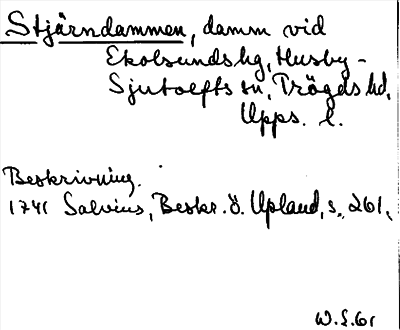 Stjärndammen, damm vid
Ekolsunds hg, Husby-
Sjutolfts sn, Trögds hd,
Upps. l.
Beskrivning.
1741 Salvius, Beskr. ö. Upland, s. 261.
W.L.61